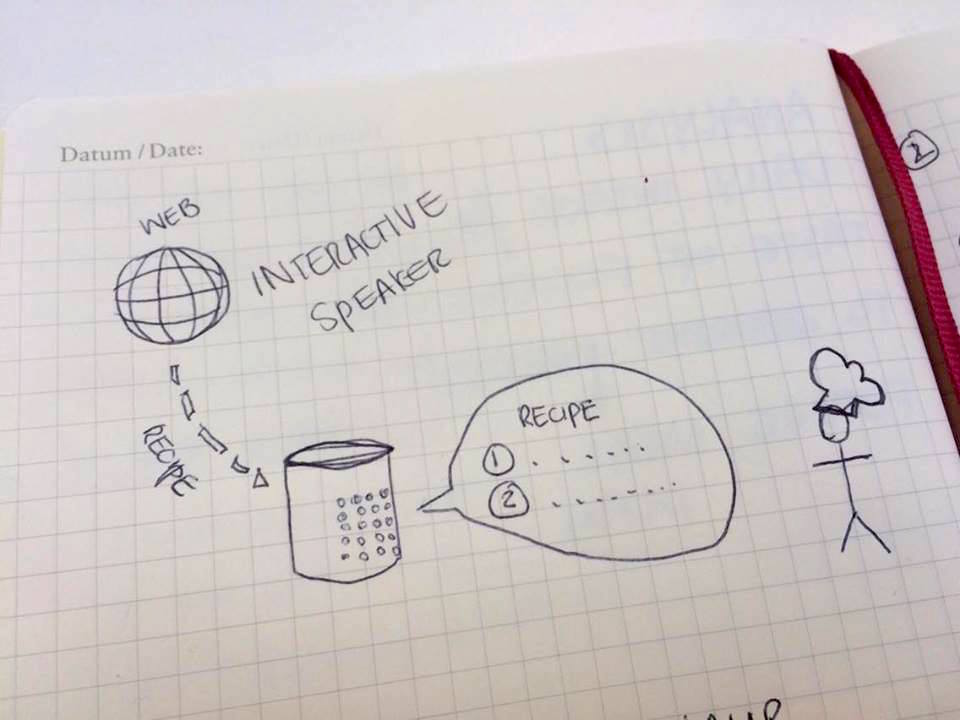 Datum / Date:
WEB
INTERACTIVE
SPEAKER
RECIPE
RECIPE
1 . . . . . .
2 . . . . . . . .
2